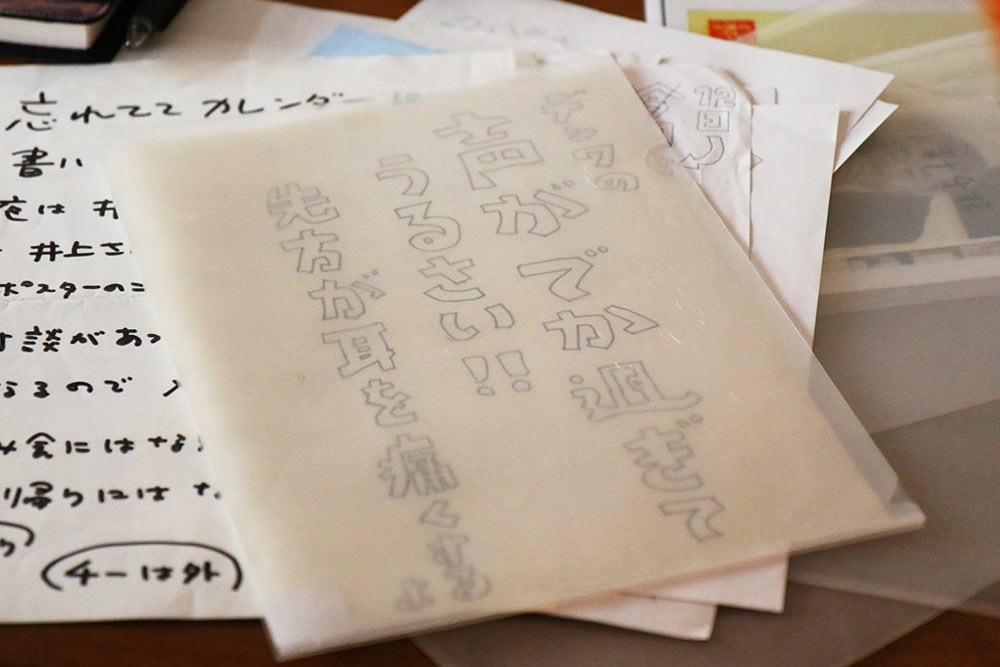 忘れてて カレンダー
書い
は
井上さ
ポスターのこ
談があっ
なるので
会にはな
帰りには
チーは外
デンワの
声がでか過ぎて
うるさい!!
先方が耳を痛くするよ
12回